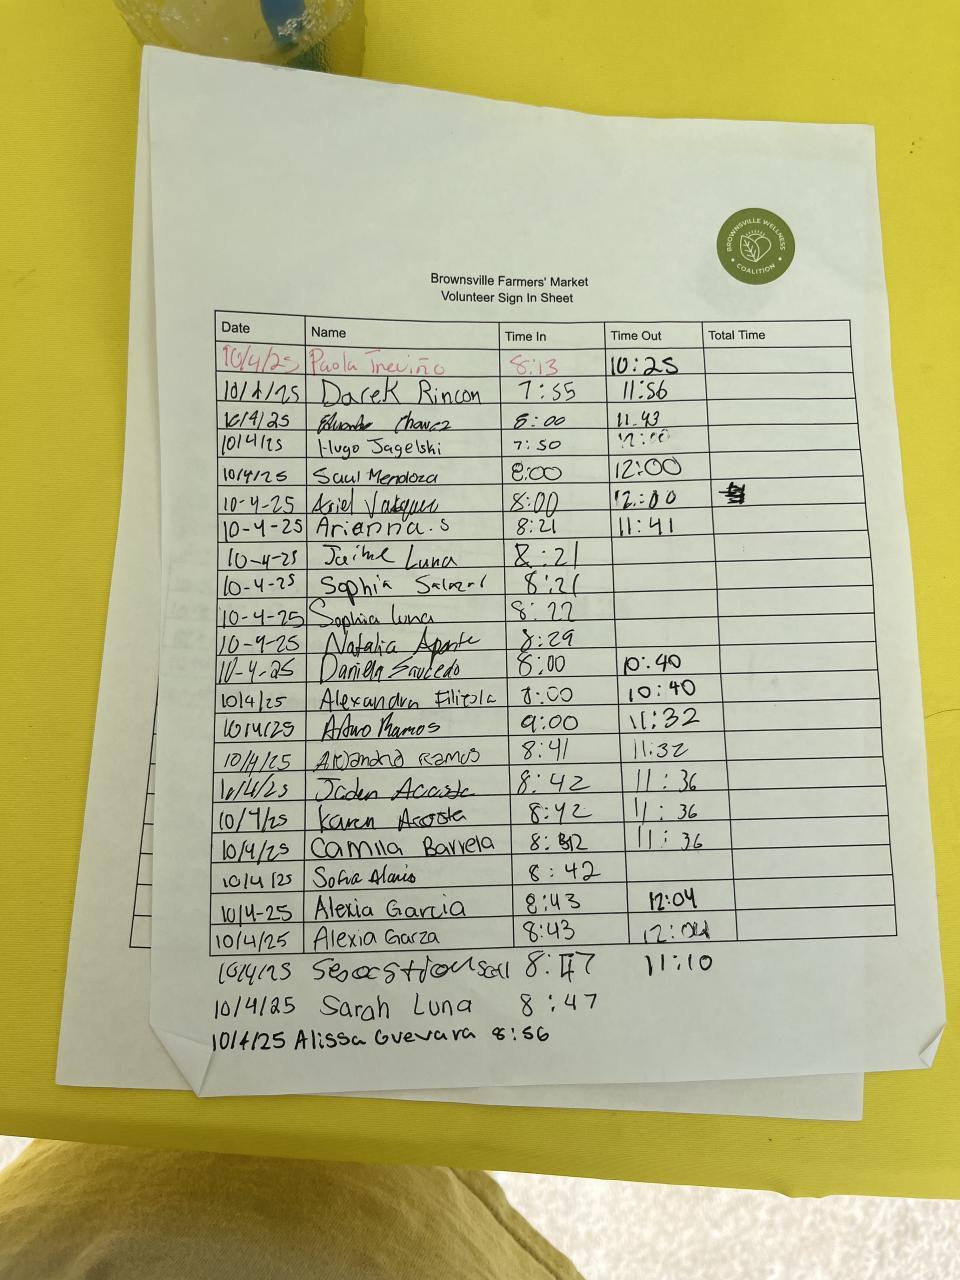 BROWNSVILLE WELLNESS COALITION
Brownsville Farmers' Market
Volunteer Sign In Sheet
Date Name Time In Time Out Total Time
10/4/25 Paola Treviño 8:13 10:25
10/4/25 Darek Rincon 7:55 11:56
10/4/25 Chavez 8:00 11:43
10/4/25 Hugo Jagelski 7:50 12:00
10/4/25 Saul Mendoza 8:00 12:00
10-4-25 Ariel Vazquez 8:00 12:00
10-4-25 Arianna.S 8:21 11:41
10-4-25 Jaime Luna 8:21
10-4-25 Sophia Salazar 8:21
10-4-25 Sophia Luna 8:22
10-4-25 Natalia Aponte 8:29
10-4-25 Daniela Saucedo 8:00 10:40
10/4/25 Alexandra 8:00 10:40
10/4/25 Arturo Ramos 9:00 11:32
10/4/25 Alejandra Ramos 8:41 11:32
10/4/25 Jaden Acosta 8:42 11:36
10/4/25 Karen Acosta 8:42 11:36
10/4/25 Camila Barrela 8: 11:36
10/4/25 Sofia Alanis 8:42
10/4-25 Alexia Garcia 8:43 12:04
10/4/25 Alexia Garza 8:43 12:04
10/4/25 8:47 11:10
10/4/25 Sarah Luna 8:47
10/4/25 Alissa Guevara 8:56